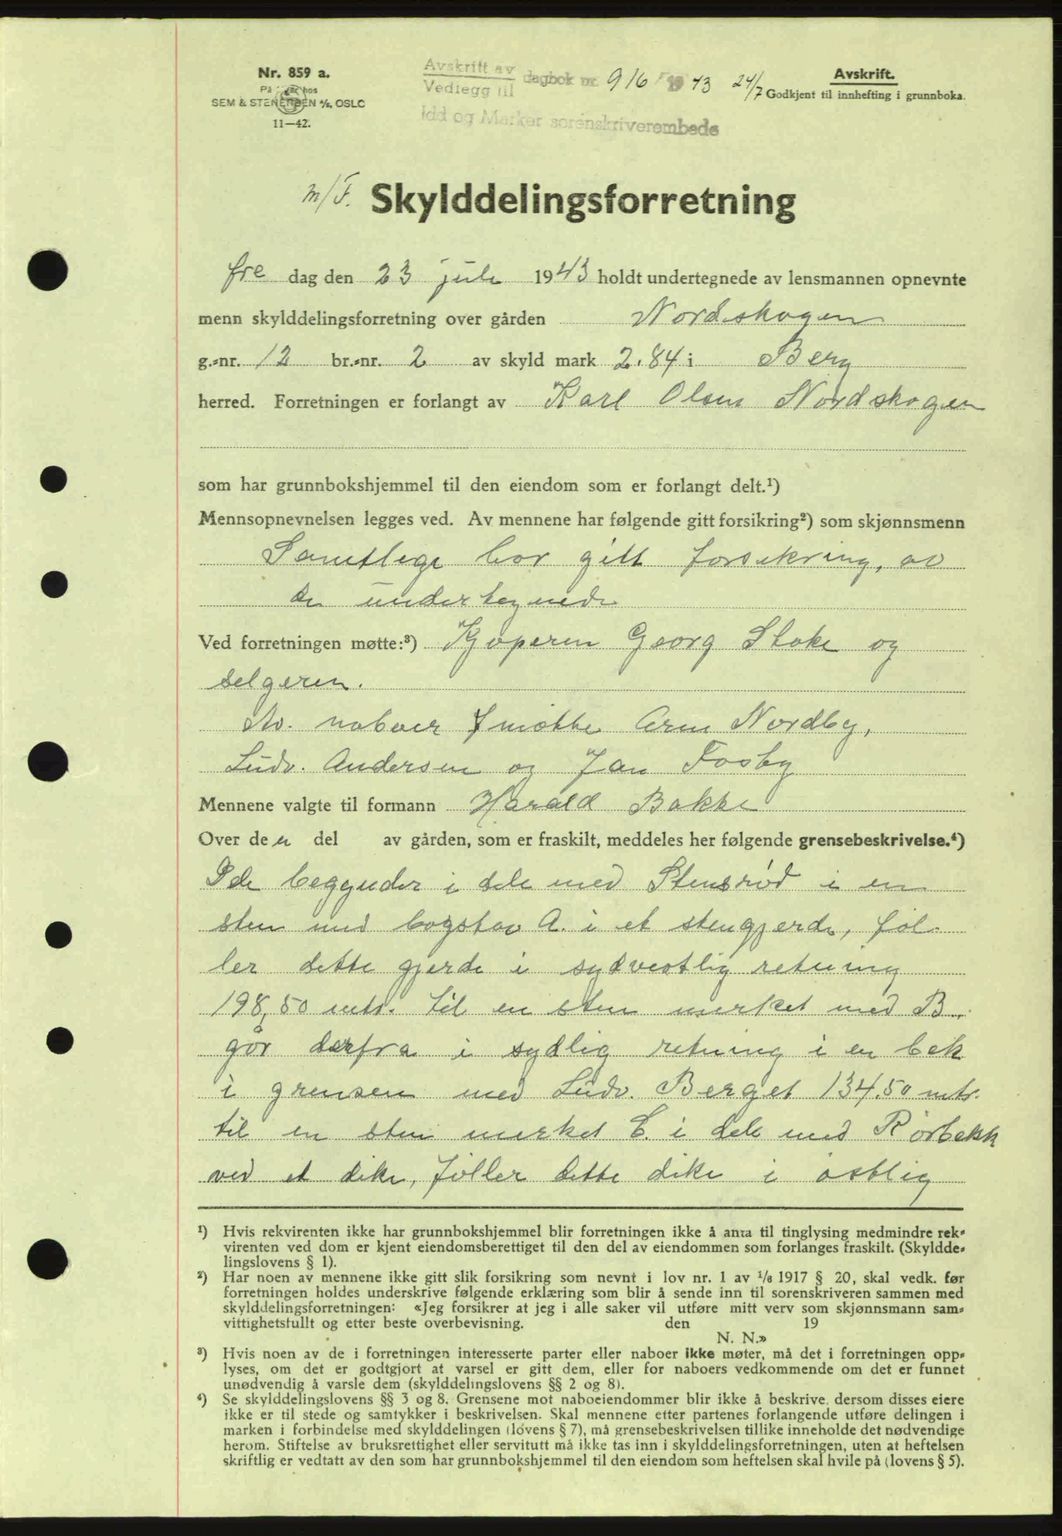 Nr. 859 a.
På hos
SEM & STENERSEN A/S, OSLO
11—42.
Avskrift av
Vedlegg til dagbok nr. 916 1943 24/7
Idd og Marker sorenskriverembede
Avskrift.
Godkjent til innhefting i grunnboka.
m/F. Skylddelingsforretning
fre dag den 23 juli 1943 holdt undertegnede av lensmannen opnevnte
menn skylddelingsforretning over gården Nordskogen
g.-nr. 12 br.-nr. 2 av skyld mark 2.84 i Berg
herred. Forretningen er forlangt av Karl Olsen Nordskogen
som har grunnbokshjemmel til den eiendom som er forlangt delt.¹)
Mennsopnevnelsen legges ved. Av mennene har følgende gitt forsikring²) som skjønnsmenn
Samtlege har gitt forsikring, av
de undertegnede
Ved forretningen møtte:³) Kjøperen Georg Stoke og
selgeren.
Av naboer møtte Arne Nordby,
Ludv. Andersen og Jan Fosby
Mennene valgte til formann Harald Bakke
Over den del av gården, som er fraskilt, meddeles her følgende grensebeskrivelse.⁴)
De begynder i dele med Stensrød i en
sten med bogstav A. i et stengjerde, føl-
ler dette gjerde i sydvestlig retning
198,50 mtr. til en sten merket med B.
går derfra i sydlig retning i en bek
i grensen med Ludv. Berget 134.50 mtr.
til en sten merket C. i dele med Rørbekk
ved et dike, føller dette dike i østlig
¹) Hvis rekvirenten ikke har grunnbokshjemmel blir forretningen ikke å anta til tinglysing medmindre rek-
virenten ved dom er kjent eiendomsberettiget til den del av eiendommen som forlanges fraskilt. (Skyldde-
lingslovens § 1).
²) Har noen av mennene ikke gitt slik forsikring som nevnt i lov nr. 1 av 1/6 1917 § 20, skal vedk. før
forretningen holdes underskrive følgende erklæring som blir å sende inn til sorenskriveren sammen med
skylddelingsforretningen: «Jeg forsikrer at jeg i alle saker vil utføre mitt verv som skjønnsmann sam-
vittighetsfullt og etter beste overbevisning. den 19
N. N.»
³) Hvis noen av de i forretningen interesserte parter eller naboer ikke møter, må det i forretningen opp-
lyses, om det er godtgjort at varsel er gitt dem, eller for naboers vedkommende om det er funnet
unødvendig å varsle dem (skylddelingslovens §§ 2 og 8).
⁴) Se skylddelingslovens §§ 3 og 8. Grensene mot naboeiendommer blir ikke å beskrive, dersom disses eiere
ikke er til stede og samtykker i beskrivelsen. Skal mennene etter partenes forlangende utføre delingen i
marken i forbindelse med skylddelingen (lovens § 7), må grensebeskrivelsen tillike inneholde det nødvendige
herom. Stiftelse av bruksrettighet eller servitutt må ikke tas inn i skylddelingsforretningen, uten at heftelsen
skriftlig er vedtatt av den som har grunnbokshjemmel til den eiendom som heftelsen skal hvile på (lovens § 5).